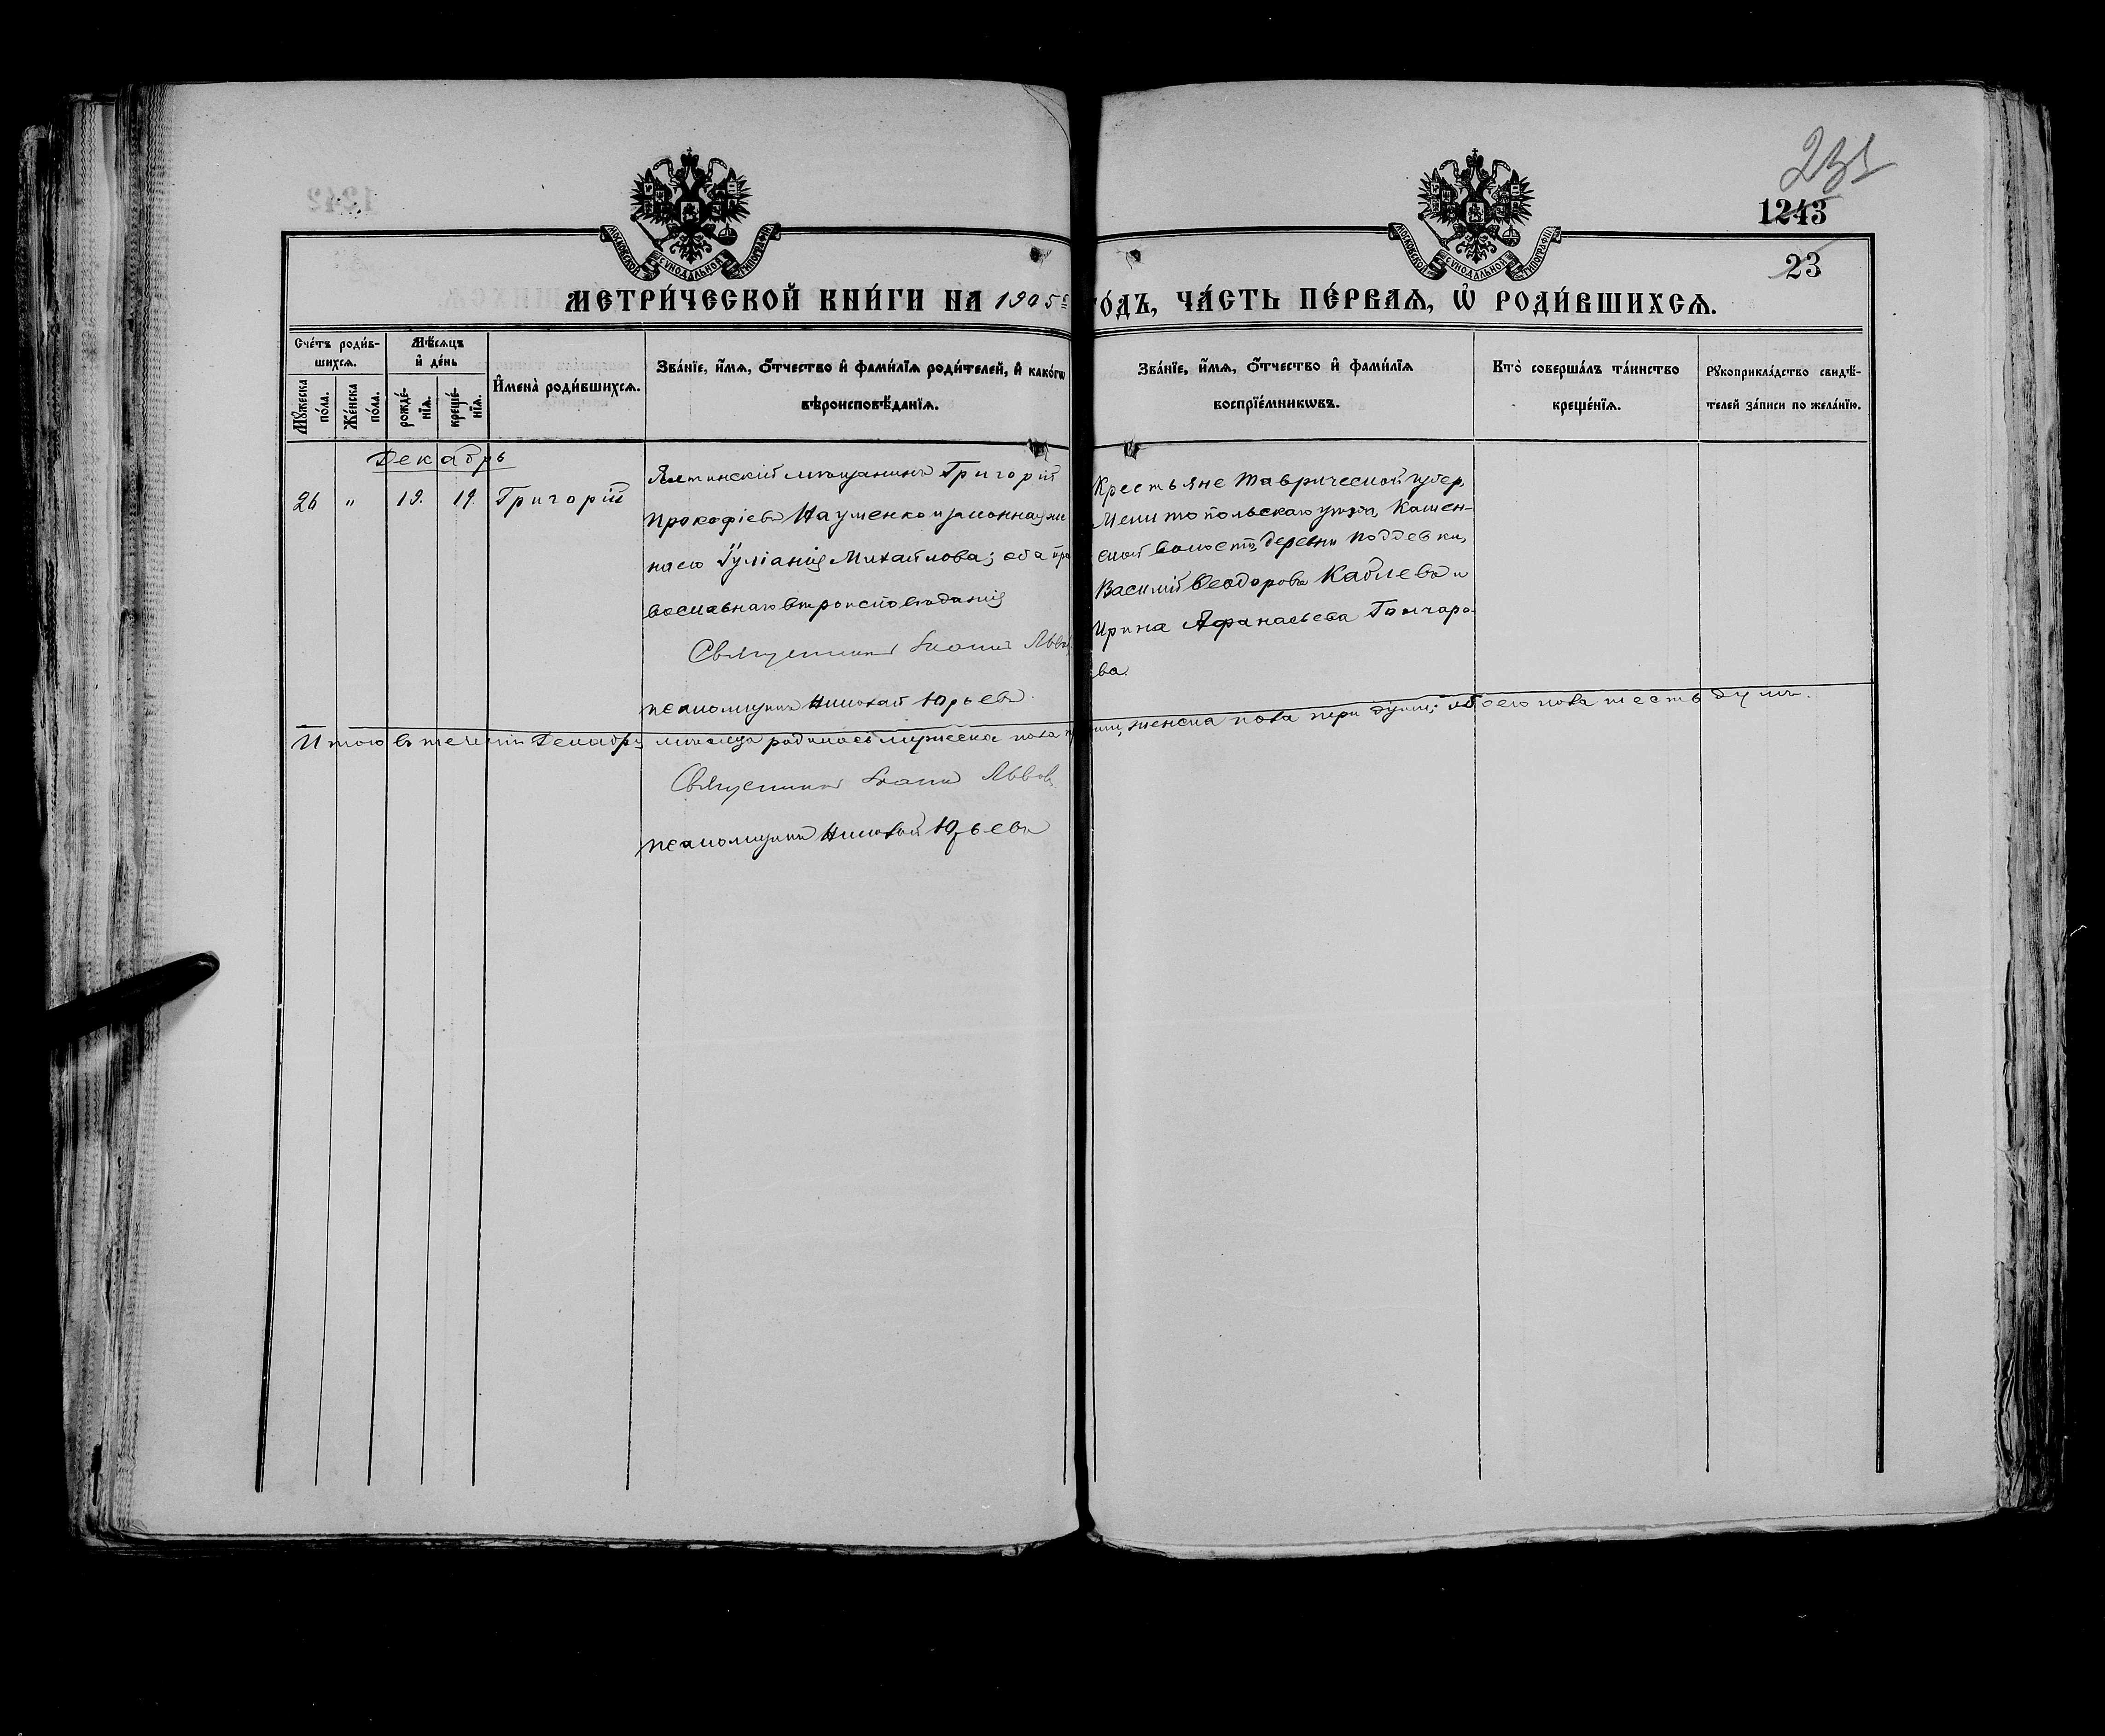 231
1243
23
МОСКОВСКОЙ СѴНОДАЛЬНОЙ ТИПОГРАФІИ
МОСКОВСКОЙ СѴНОДАЛЬНОЙ ТИПОГРАФІИ
МЕТРИ́ЧЕСКОЙ КНИ́ГИ НА 1905 ГО́ДЪ, ЧА́СТЬ ПЕ́РВАѦ, Ѡ҆ РОДИ́ВШИХСѦ.
Сче́тъ роди́в-
шихсѧ.
Мꙋ́жеска
по́ла.
Же́нска
по́ла.
Мѣ́сѧцъ
и҆ де́нь
рожде́-
нїѧ.
креще́-
нїѧ.
И҆мена̀ роди́вшихсѧ.
Зва́нїе, и҆́мѧ, ѻ҆́тчество и҆ фами́лїѧ роди́телей, и҆ како́гѡ
вѣроисповѣ́данїѧ.
Зва́нїе, и҆́мѧ, ѻ҆́тчество и҆ фами́лїѧ
воспрїе́мникѡвъ.
Кто̀ соверша́лъ та́инство
креще́нїѧ.
Рꙋкоприкла́дство свидѣ́-
телей за́писи по жела́нїю.
Декабрь
26 " 19. 19. Григорій
Ялтинскій мѣщанинъ Григорій
Прокофіевъ Науменко и законная же
на его Іуліанія Михайлова; оба пра
вославнаго вѣроисповѣданія
Священникъ Іоаннъ Львов
псаломщикъ Николай Юрьевъ.
Крестьяне Таврической губер.
Мелитопольскаго уѣзда, Камен-
ской волости, деревни Поддевки,
Василій Ѳеодоровъ Каблевъ и
Ирина Афанасьева Гончаро-
ва.
Итого въ теченіи Декабря мѣсяца родилось мужеска пола три, женска пола три души; обоего пола шесть душъ.
Священникъ Іоаннъ Львов
псаломщикъ Николай Юрьевъ